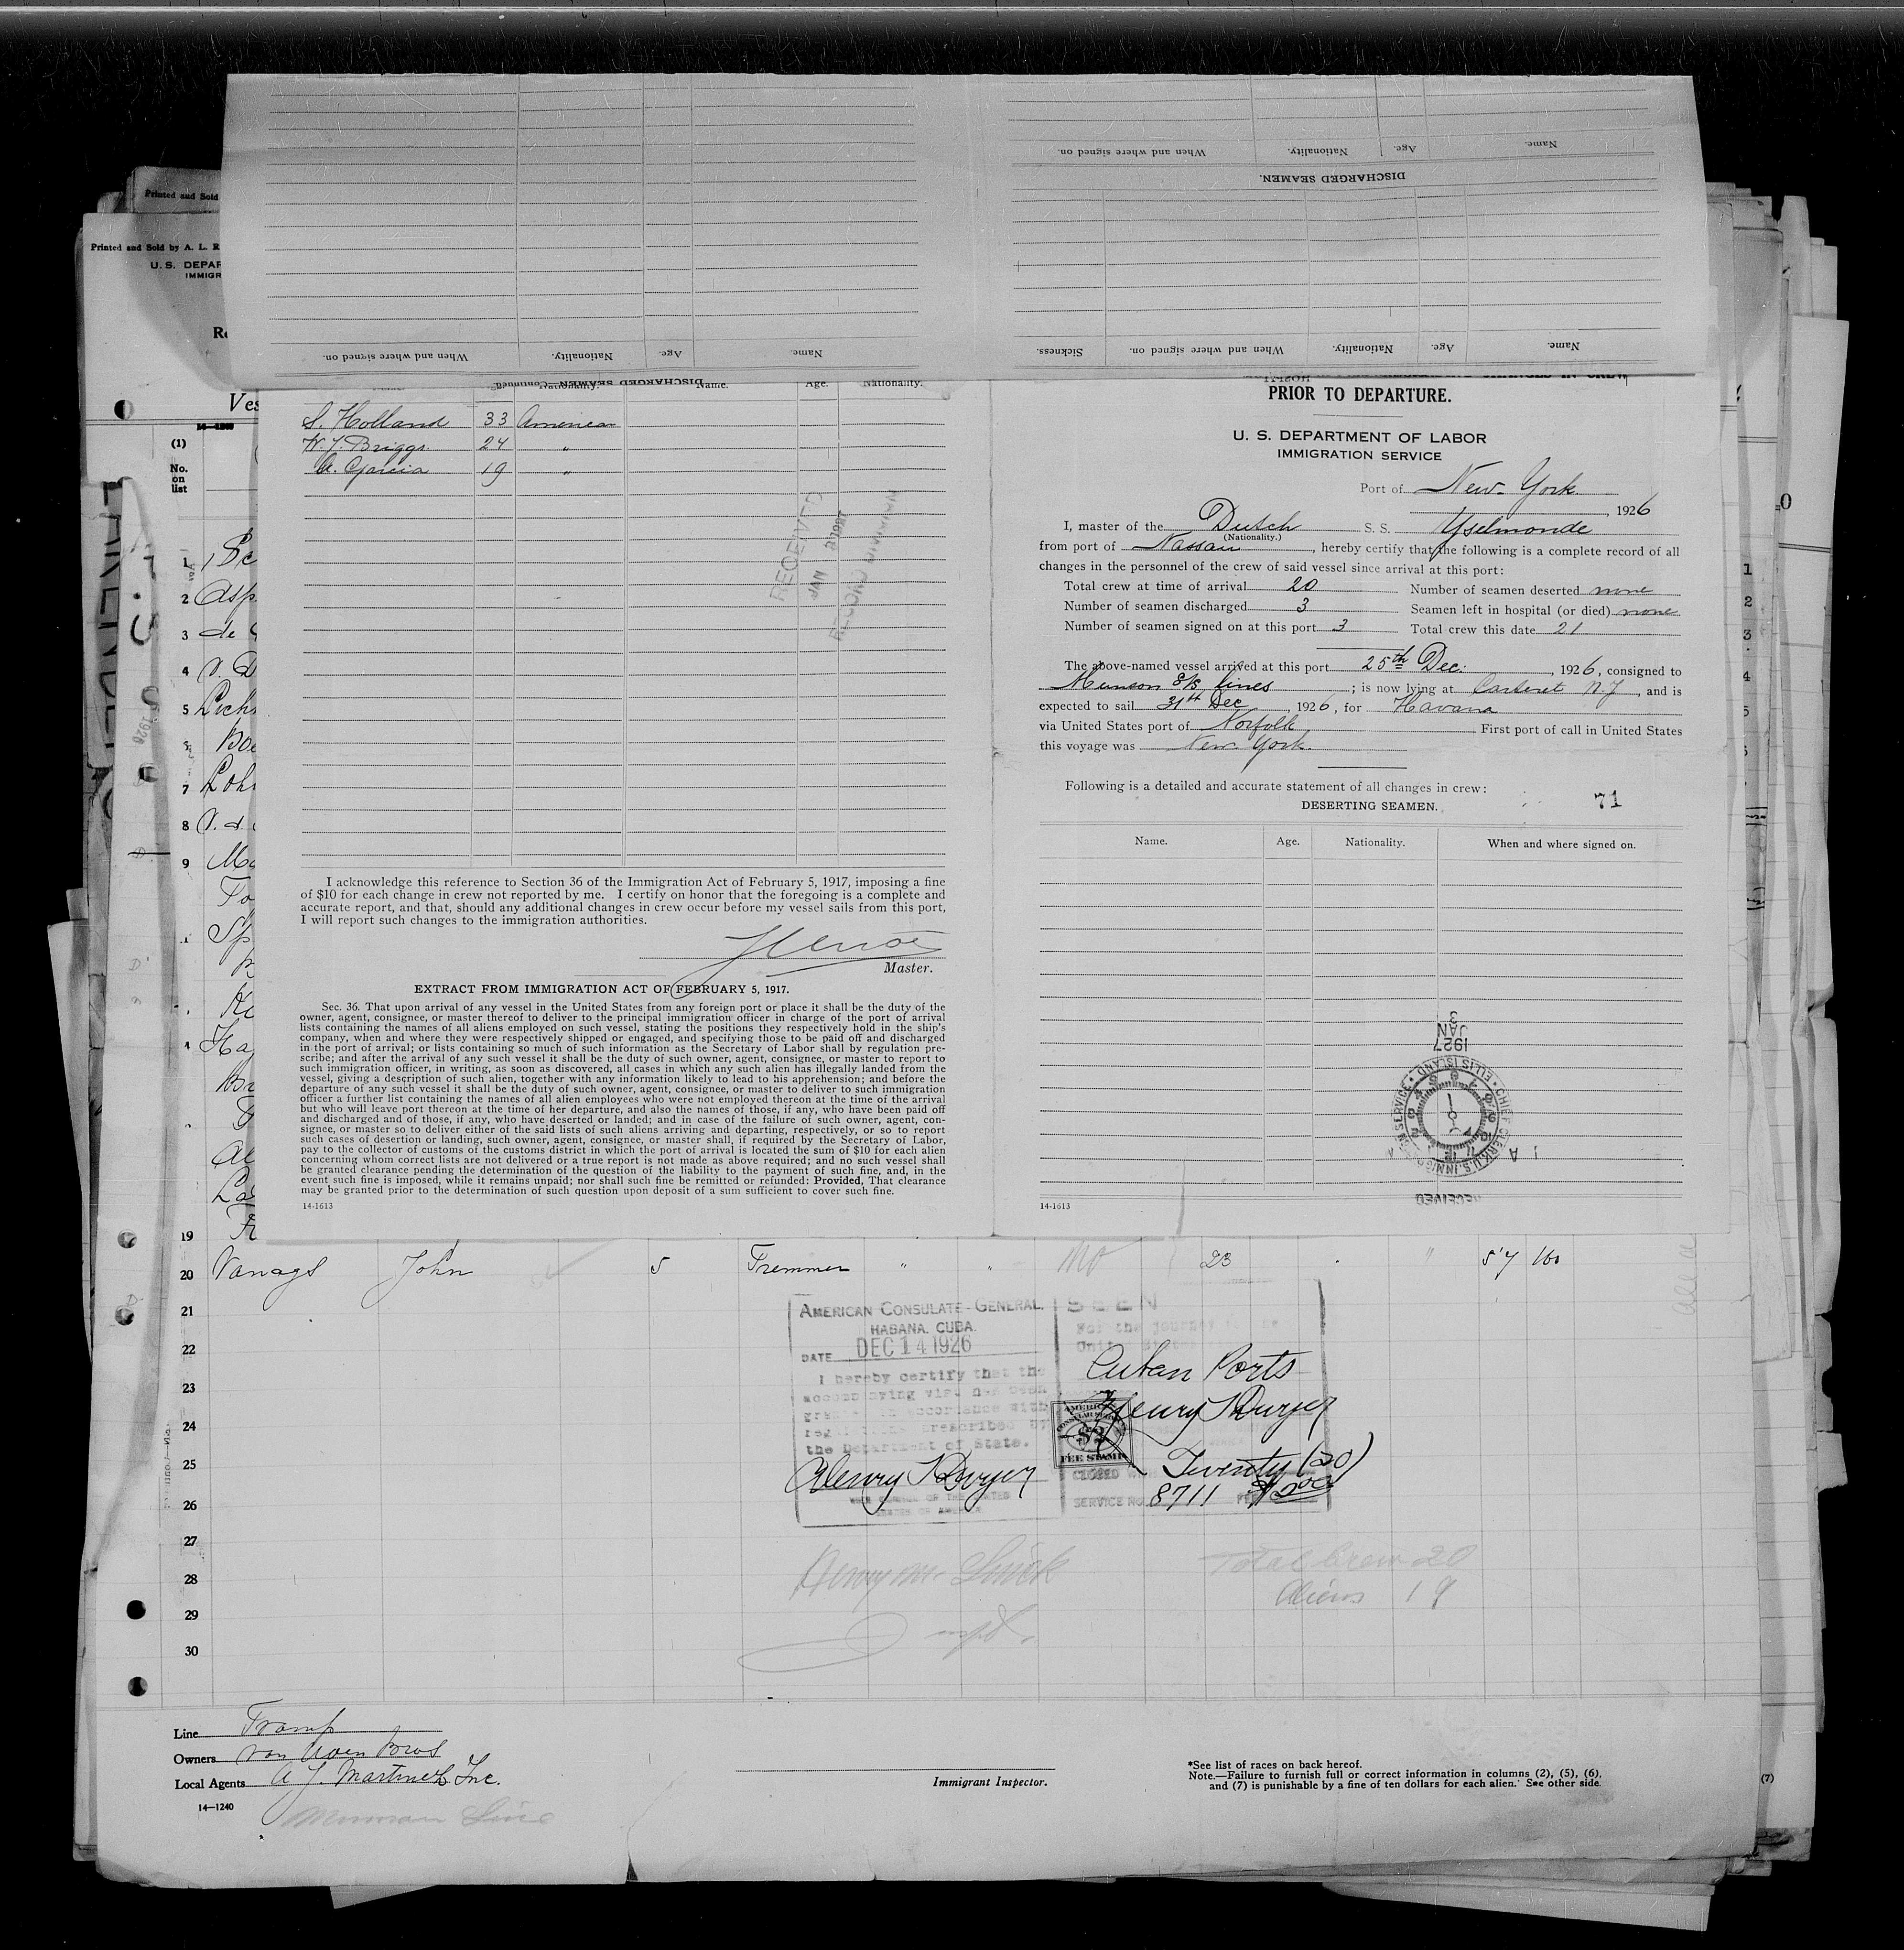 Name.
Age.
Nationality.
When and where signed on.
DISCHARGED SEAMEN.
When and where signed on.
Nationality.
Age.
Name.
Sickness.
When and where signed on.
Nationality.
Age.
Name.
Printed and Sold
Printed and Sold by A. L. R
U. S. DEPAR
IMMIGR
Ves
(1)
No.
on
list
DISCHARGED SEAMEN—Continued
Nationality.
Name.
Age.
Nationality.
S. Holland 33 American
W. J. Briggs 24 "
A. Garcia 19 "
RECEIVED
JAN
I acknowledge this reference to Section 36 of the Immigration Act of February 5, 1917, imposing a fine
of $10 for each change in crew not reported by me. I certify on honor that the foregoing is a complete and
accurate report, and that, should any additional changes in crew occur before my vessel sails from this port,
I will report such changes to the immigration authorities.
Master.
EXTRACT FROM IMMIGRATION ACT OF FEBRUARY 5, 1917.
Sec. 36. That upon arrival of any vessel in the United States from any foreign port or place it shall be the duty of the
owner, agent, consignee, or master thereof to deliver to the principal immigration officer in charge of the port of arrival
lists containing the names of all aliens employed on such vessel, stating the positions they respectively hold in the ship's
company, when and where they were respectively shipped or engaged, and specifying those to be paid off and discharged
in the port of arrival; or lists containing so much of such information as the Secretary of Labor shall by regulation pre-
scribe; and after the arrival of any such vessel it shall be the duty of such owner, agent, consignee, or master to report to
such immigration officer, in writing, as soon as discovered, all cases in which any such alien has illegally landed from the
vessel, giving a description of such alien, together with any information likely to lead to his apprehension; and before the
departure of any such vessel it shall be the duty of such owner, agent, consignee, or master to deliver to such immigration
officer a further list containing the names of all alien employees who were not employed thereon at the time of the arrival
but who will leave port thereon at the time of her departure, and also the names of those, if any, who have been paid off
and discharged and of those, if any, who have deserted or landed; and in case of the failure of such owner, agent, con-
signee, or master so to deliver either of the said lists of such aliens arriving and departing, respectively, or so to report
such cases of desertion or landing, such owner, agent, consignee, or master shall, if required by the Secretary of Labor,
pay to the collector of customs of the customs district in which the port of arrival is located the sum of $10 for each alien
concerning whom correct lists are not delivered or a true report is not made as above required; and no such vessel shall
be granted clearance pending the determination of the question of the liability to the payment of such fine, and, in the
event such fine is imposed, while it remains unpaid; nor shall such fine be remitted or refunded: Provided, That clearance
may be granted prior to the determination of such question upon deposit of a sum sufficient to cover such fine.
14-1613
PRIOR TO DEPARTURE.
U. S. DEPARTMENT OF LABOR
IMMIGRATION SERVICE
Port of New York
, 1926
I, master of the Dutch S. S. Yselmonde
(Nationality.)
from port of Nassau, hereby certify that the following is a complete record of all
changes in the personnel of the crew of said vessel since arrival at this port:
Total crew at time of arrival 20 Number of seamen deserted none
Number of seamen discharged 3 Seamen left in hospital (or died) none
Number of seamen signed on at this port 3 Total crew this date 21
The above-named vessel arrived at this port 25th Dec., 1926, consigned to
Munson S/S lines; is now lying at Carteret N. J, and is
expected to sail 31th Dec, 1926, for Havana
via United States port of Norfolk First port of call in United States
this voyage was New York.
Following is a detailed and accurate statement of all changes in crew:
DESERTING SEAMEN.
71
Name. Age. Nationality. When and where signed on.
3
JAN
1927
CHIEF CLERK, U.S. IMMIGRATION SERVICE • ELLIS ISLAND •
RECEIVED
14-1613
1
2
3
4
5
7
8
9
19
20 Vanags John 5 Tremmer " " 23 " 5'7 160
21
22
23
24
25
26
27
28
29
30
AMERICAN CONSULATE-GENERAL.
HABANA. CUBA.
DATE DEC 14 1926
I hereby certify that the
accompanying visa has been
granted in accordance with
regulations prescribed by
the Department of State.
Henry T Dwyer
SEEN
For the journey to the
United States
Cuban Ports
Henry T Dwyer
AMERICAN
CONSULAR SERVICE
$2
FEE STAMP
Twenty (20)
SERVICE NO. 8711
Total Crew 20
Aliens 19
Line Tramp
Owners van Uden Bros
Local Agents A J. Martinez Inc.
14—1240
Munson Line
Immigrant Inspector.
*See list of races on back hereof.
Note.—Failure to furnish full or correct information in columns (2), (5), (6),
and (7) is punishable by a fine of ten dollars for each alien. See other side.
(7)